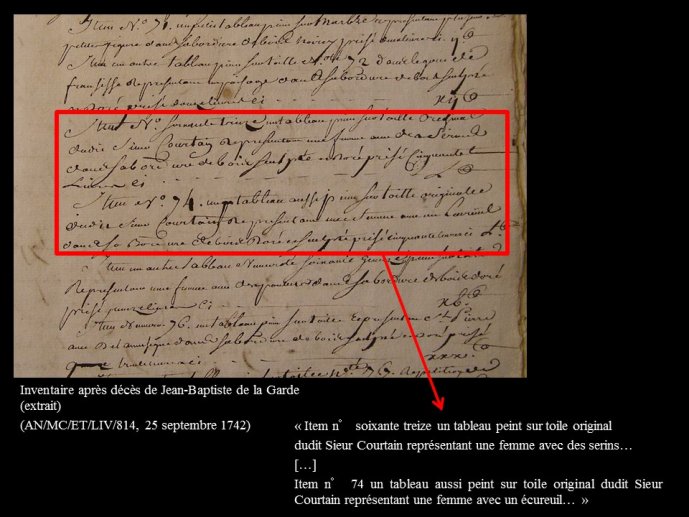 Item N.º 71. un petit tableau peint sur marbre representant plusieurs
petites figures dans sa bordure de bois noircy prisé
Item un autre tableau peint sur toille N.º 72 dans le gout de
representant un paisage dans sa bordure de bois sculpté
et doré prisé
Item N.º soixante treize un tableau peint sur toille original
dudit Sieur Courtain Representant une femme avec des Serins
dans sa bordure de bois sculpté et doré prisé Cinquante
Livres cy
Item N.º 74. un tableau aussy peint sur toille originalle
dudit Sieur Courtain Representant une femme avec un Ecureuil
dans sa Bordure de bois doré et sculpté prisé cinquante livres cy
Item un autre tableau Numero soixante quinze peint sur toille
Representant une femme avec dans sa bordure de bois doré
prisé quinze livres cy
Item Numero 76. un tableau peint sur toille representant St. Pierre
dans sa bordure de bois sculpté et doré prisé
trente livres cy
Inventaire après décès de Jean-Baptiste de la Garde
(extrait)
(AN/MC/ET/LIV/814, 25 septembre 1742)
« Item n° soixante treize un tableau peint sur toile original
dudit Sieur Courtain représentant une femme avec des serins…
[…]
Item n° 74 un tableau aussi peint sur toile original dudit Sieur
Courtain représentant une femme avec un écureuil… »